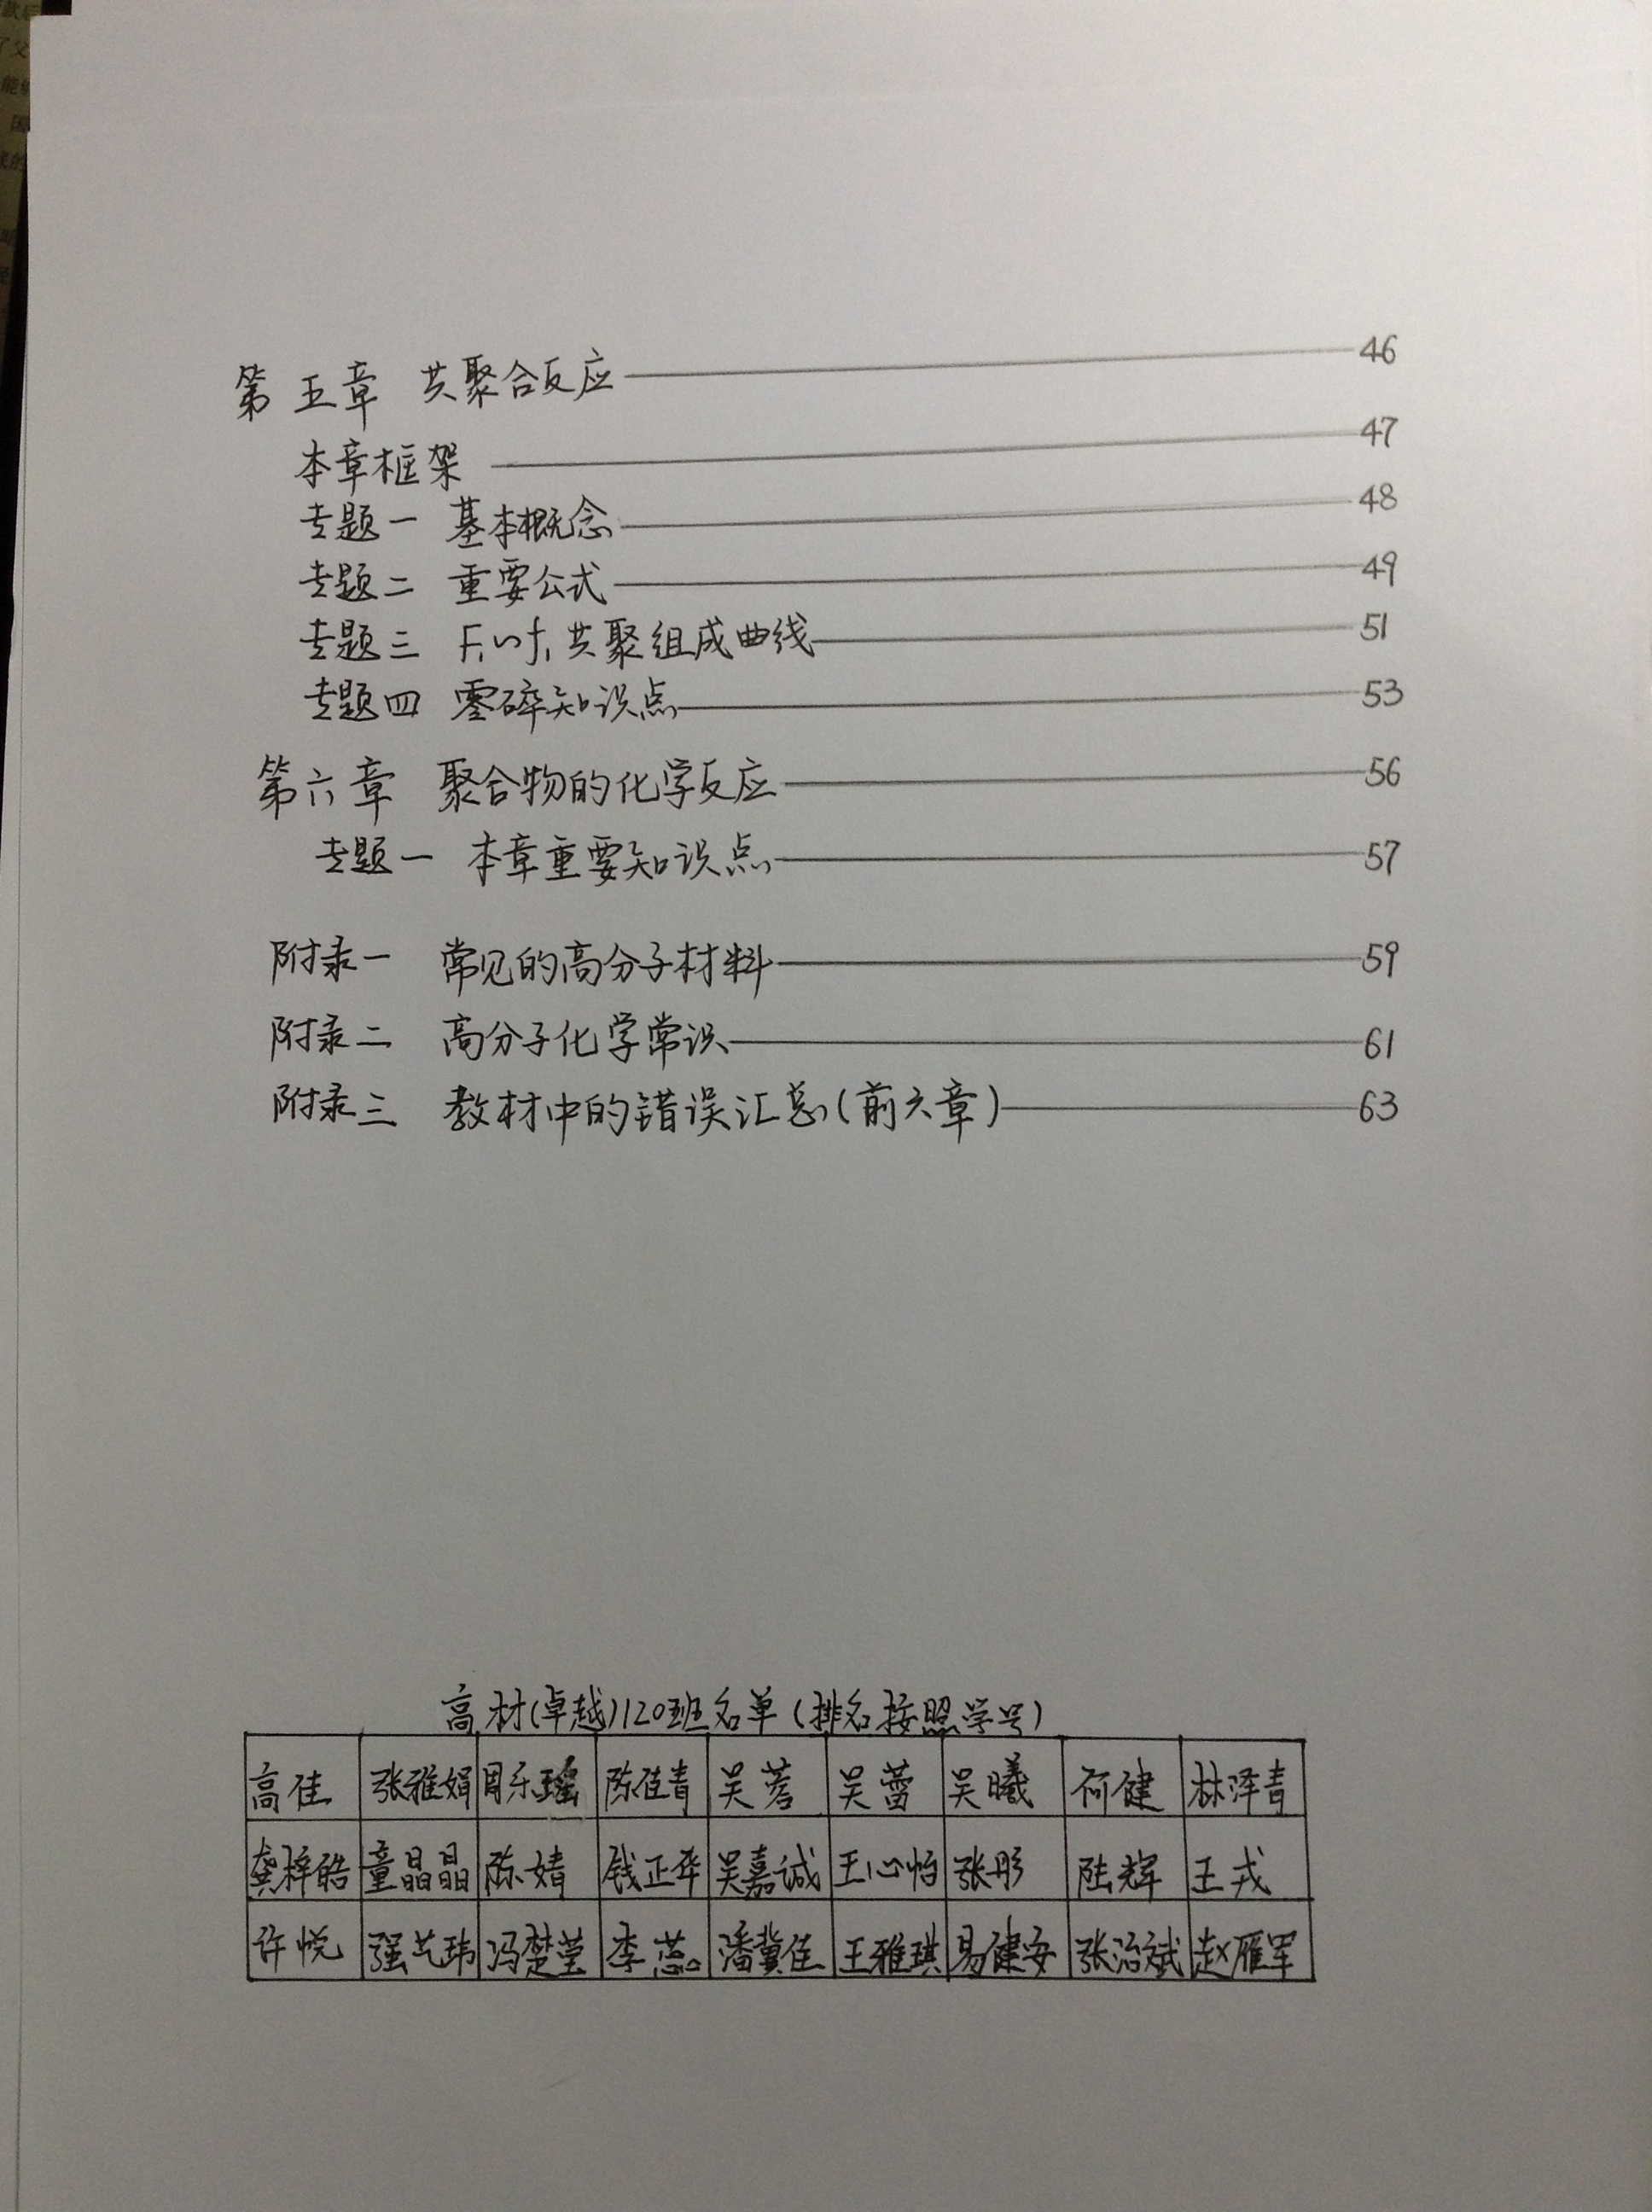 第五章 共聚合反应 46
本章框架 47
专题一 基本概念 48
专题二 重要公式 49
专题三 F₁~f₁共聚组成曲线 51
专题四 零碎知识点 53
第六章 聚合物的化学反应 56
专题一 本章重要知识点 57
附录一 常见的高分子材料 59
附录二 高分子化学常识 61
附录三 教材中的错误汇总(前六章) 63
高材(卓越)120班名单(排名按照学号)
高佳 张雅娟 周乐瑶 陈佳青 吴蕾 吴曦 何健 林泽青
龚梓皓 童晶晶 陈婧 钱正华 吴嘉诚 王心怡 张彤 陆辉 王戎
许悦 强艺玮 冯楚莹 李蕊 潘冀佳 王雅琪 易健安 张治斌 赵雁军